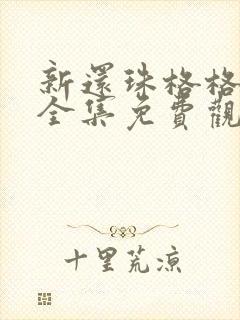 新還珠格格
全集免費觀
十里荒凉